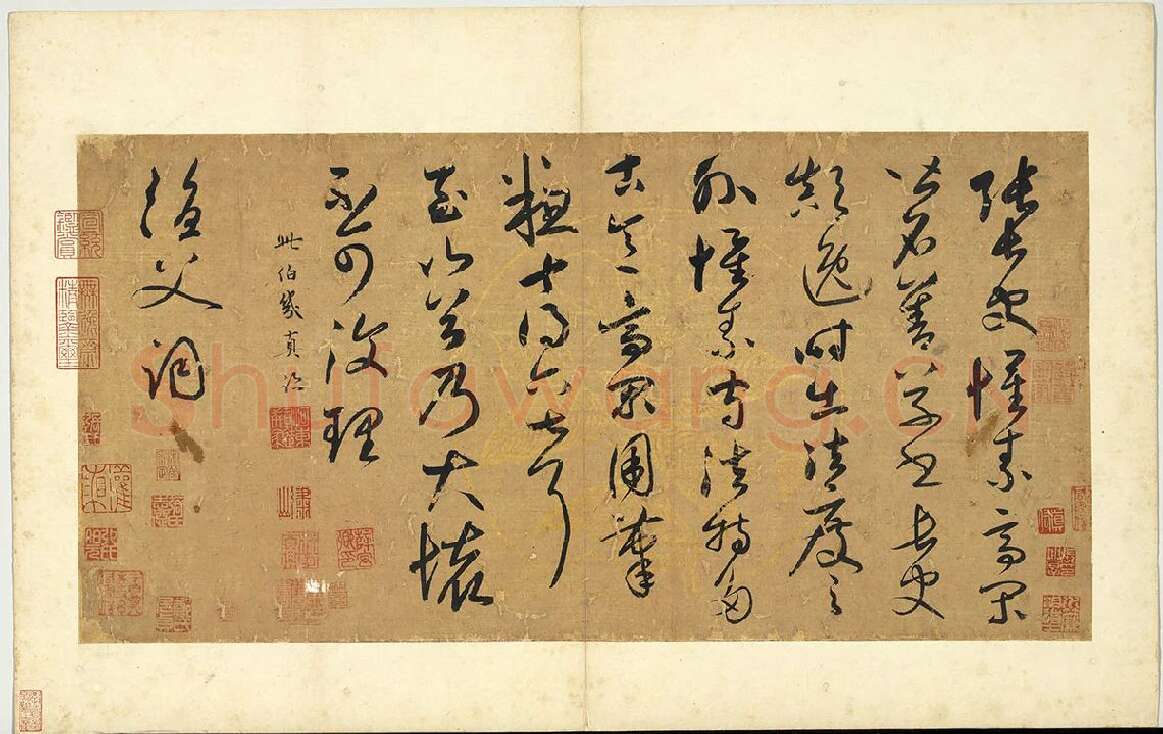 張長史懷素高閑
皆名善草書長史
顛逸時出法度之
外懷素守法特多
古意高閑用筆
粗十得六七耳
至山谷乃大壞
不可復理
此伯幾真迹
漁父詞
shufawang.cn